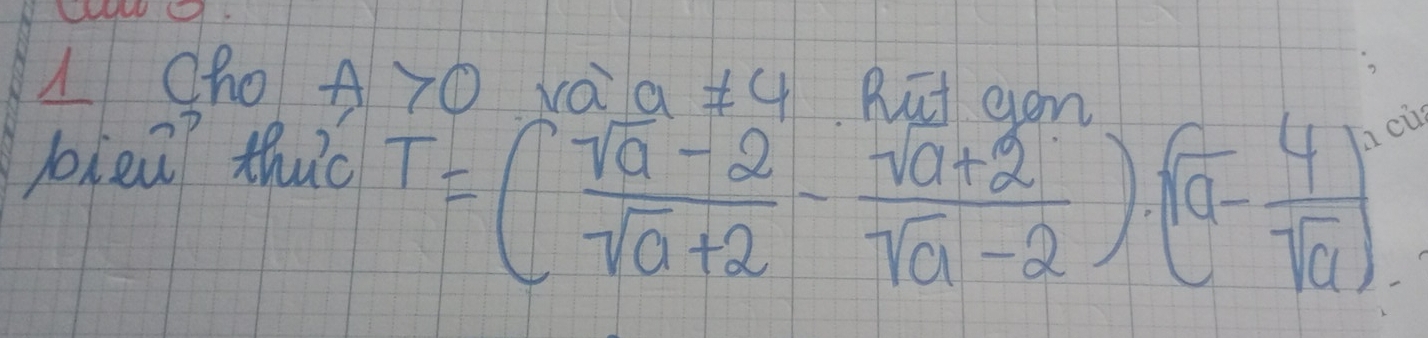 1 Cho A > 0 và a ≠ 4. Rút gọn
biểu thức T = ( (√a - 2)/(√a + 2) - (√a + 2)/(√a - 2) ) . (√a - 4/√a)
củ